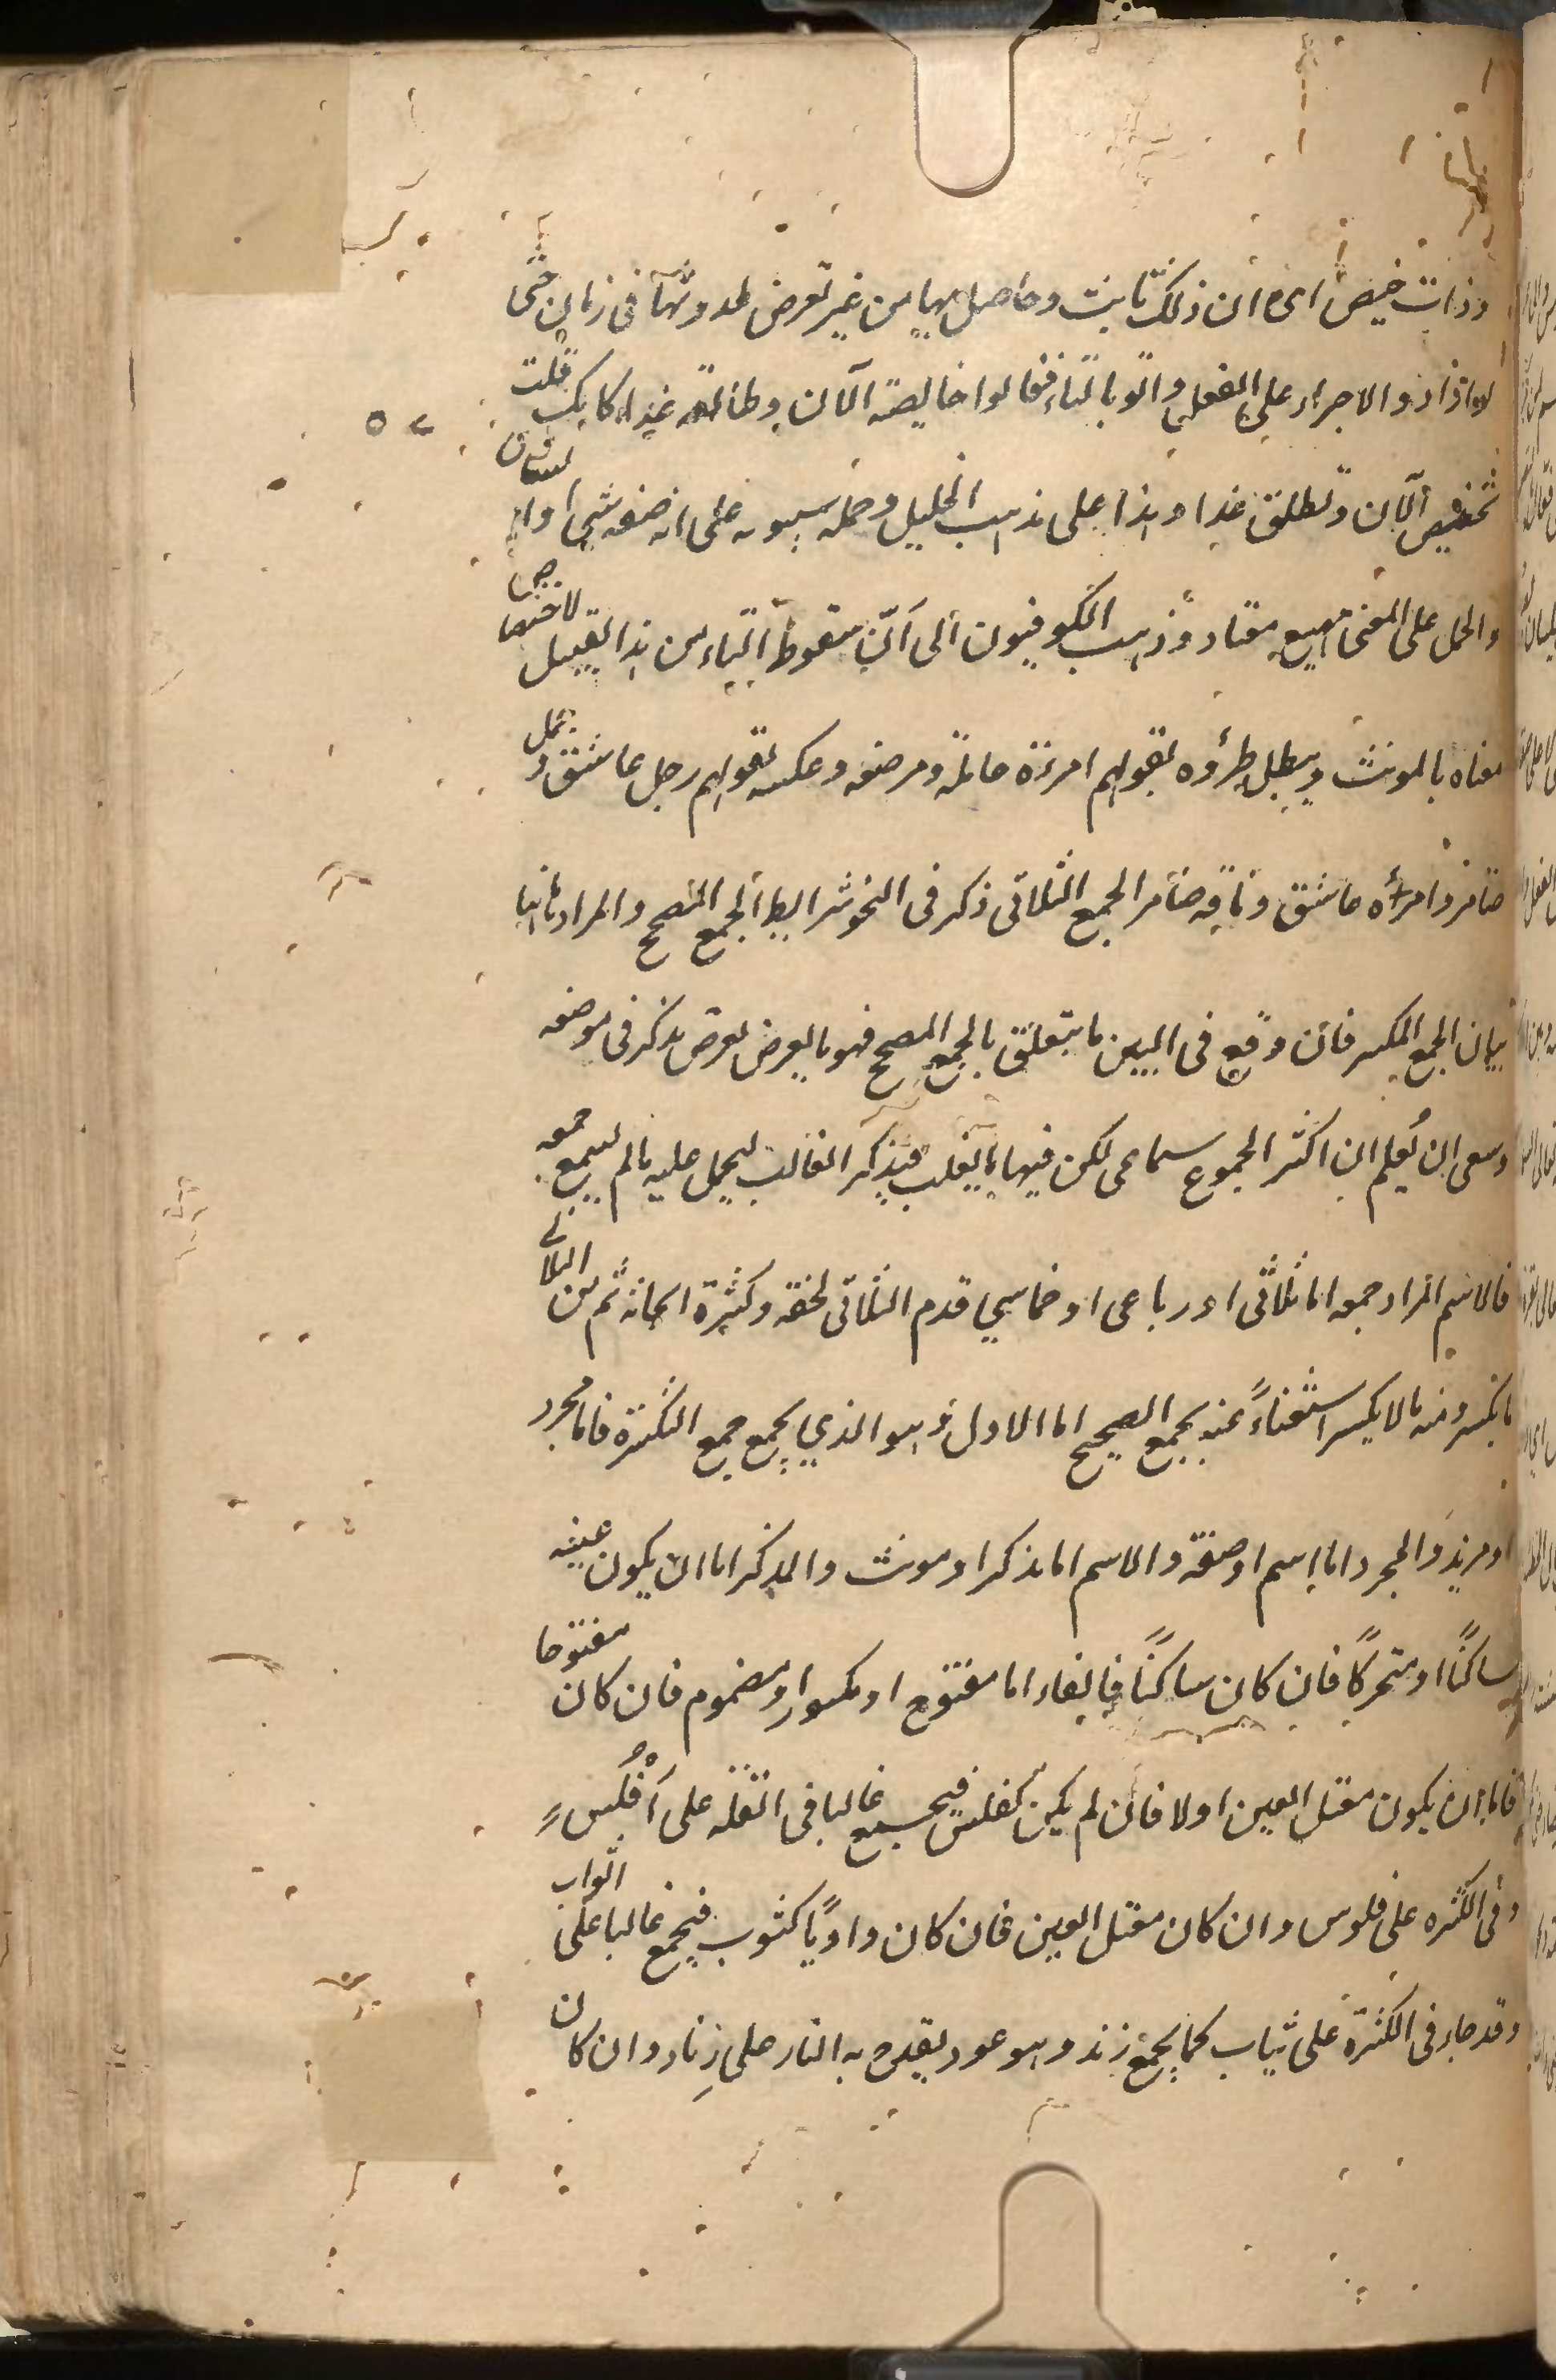 وذات حيض اى ان ذلك ثابت وحاصل لها من غير تعرض لحدوثها فى زمان حتى
لو ارادوا الاجراء على الفعل اتوا بالتاء فقالوا حايضة الآن وطالقة غدا كانك قلت
تحيض الآن وتطلق غدا وهذا على مذهب الخليل وحمله سيبويه على انه صفة شىء او انسان
والحمل على المعنى مهيع معتاد وذهب الكوفيون الى ان سقوط التاء من هذا القبيل لاختصاص
معناه بالمونث ويبطل طرده بقولهم امرءة حاملة ومرضعة وعكسه بقولهم رجل عاشق وجمل
ضامر وامرأة عاشق وناقة ضامر الجمع الثلاثى ذكر فى النحو شرايط الجمع المصحح والمراد هاهنا
بيان الجمع المكسر فان وقع فى البين ما يتعلق بالجمع المصحح فهو بالعرض لغرض يذكر فى موضعه
وينبغى ان يُعلم ان اكثر الجموع سماعى لكن فيها ما يغلب فيذكر الغالب ليحمل عليه ما لم يسمع جمعه
فالاسم المراد جمعه اما ثلاثى او رباعى او خماسي قدم الثلاثى لخفته وكثرة ابحاثه ثم من الثلاثى
ما يكسر ومنه ما لا يكسر استغناءً عنه بجمع الصحيح اما الاول وهو الذي يجمع جمع الكثرة فاما مجرد
او مزيد والمجرد اما اسم او صفة والاسم اما مذكر او مونث والمذكر اما ان يكون عينه
ساكنًا او متحركًا فان كان ساكنًا فالفاء اما مفتوح او مكسور او مضموم فان كان مفتوحا
فاما ان يكون معتل العين او لا فان لم يكن كفلس فيجمع غالبا فى القلة على اَفْلُس
وفى الكثرة على فلوس وان كان معتل العين فان كان واويًا كثوب فيجمع غالبا على اثواب
وقد جاء فى الكثرة على ثياب كما يجمع زند وهو عود يقدح به النار على زِناد وان كان